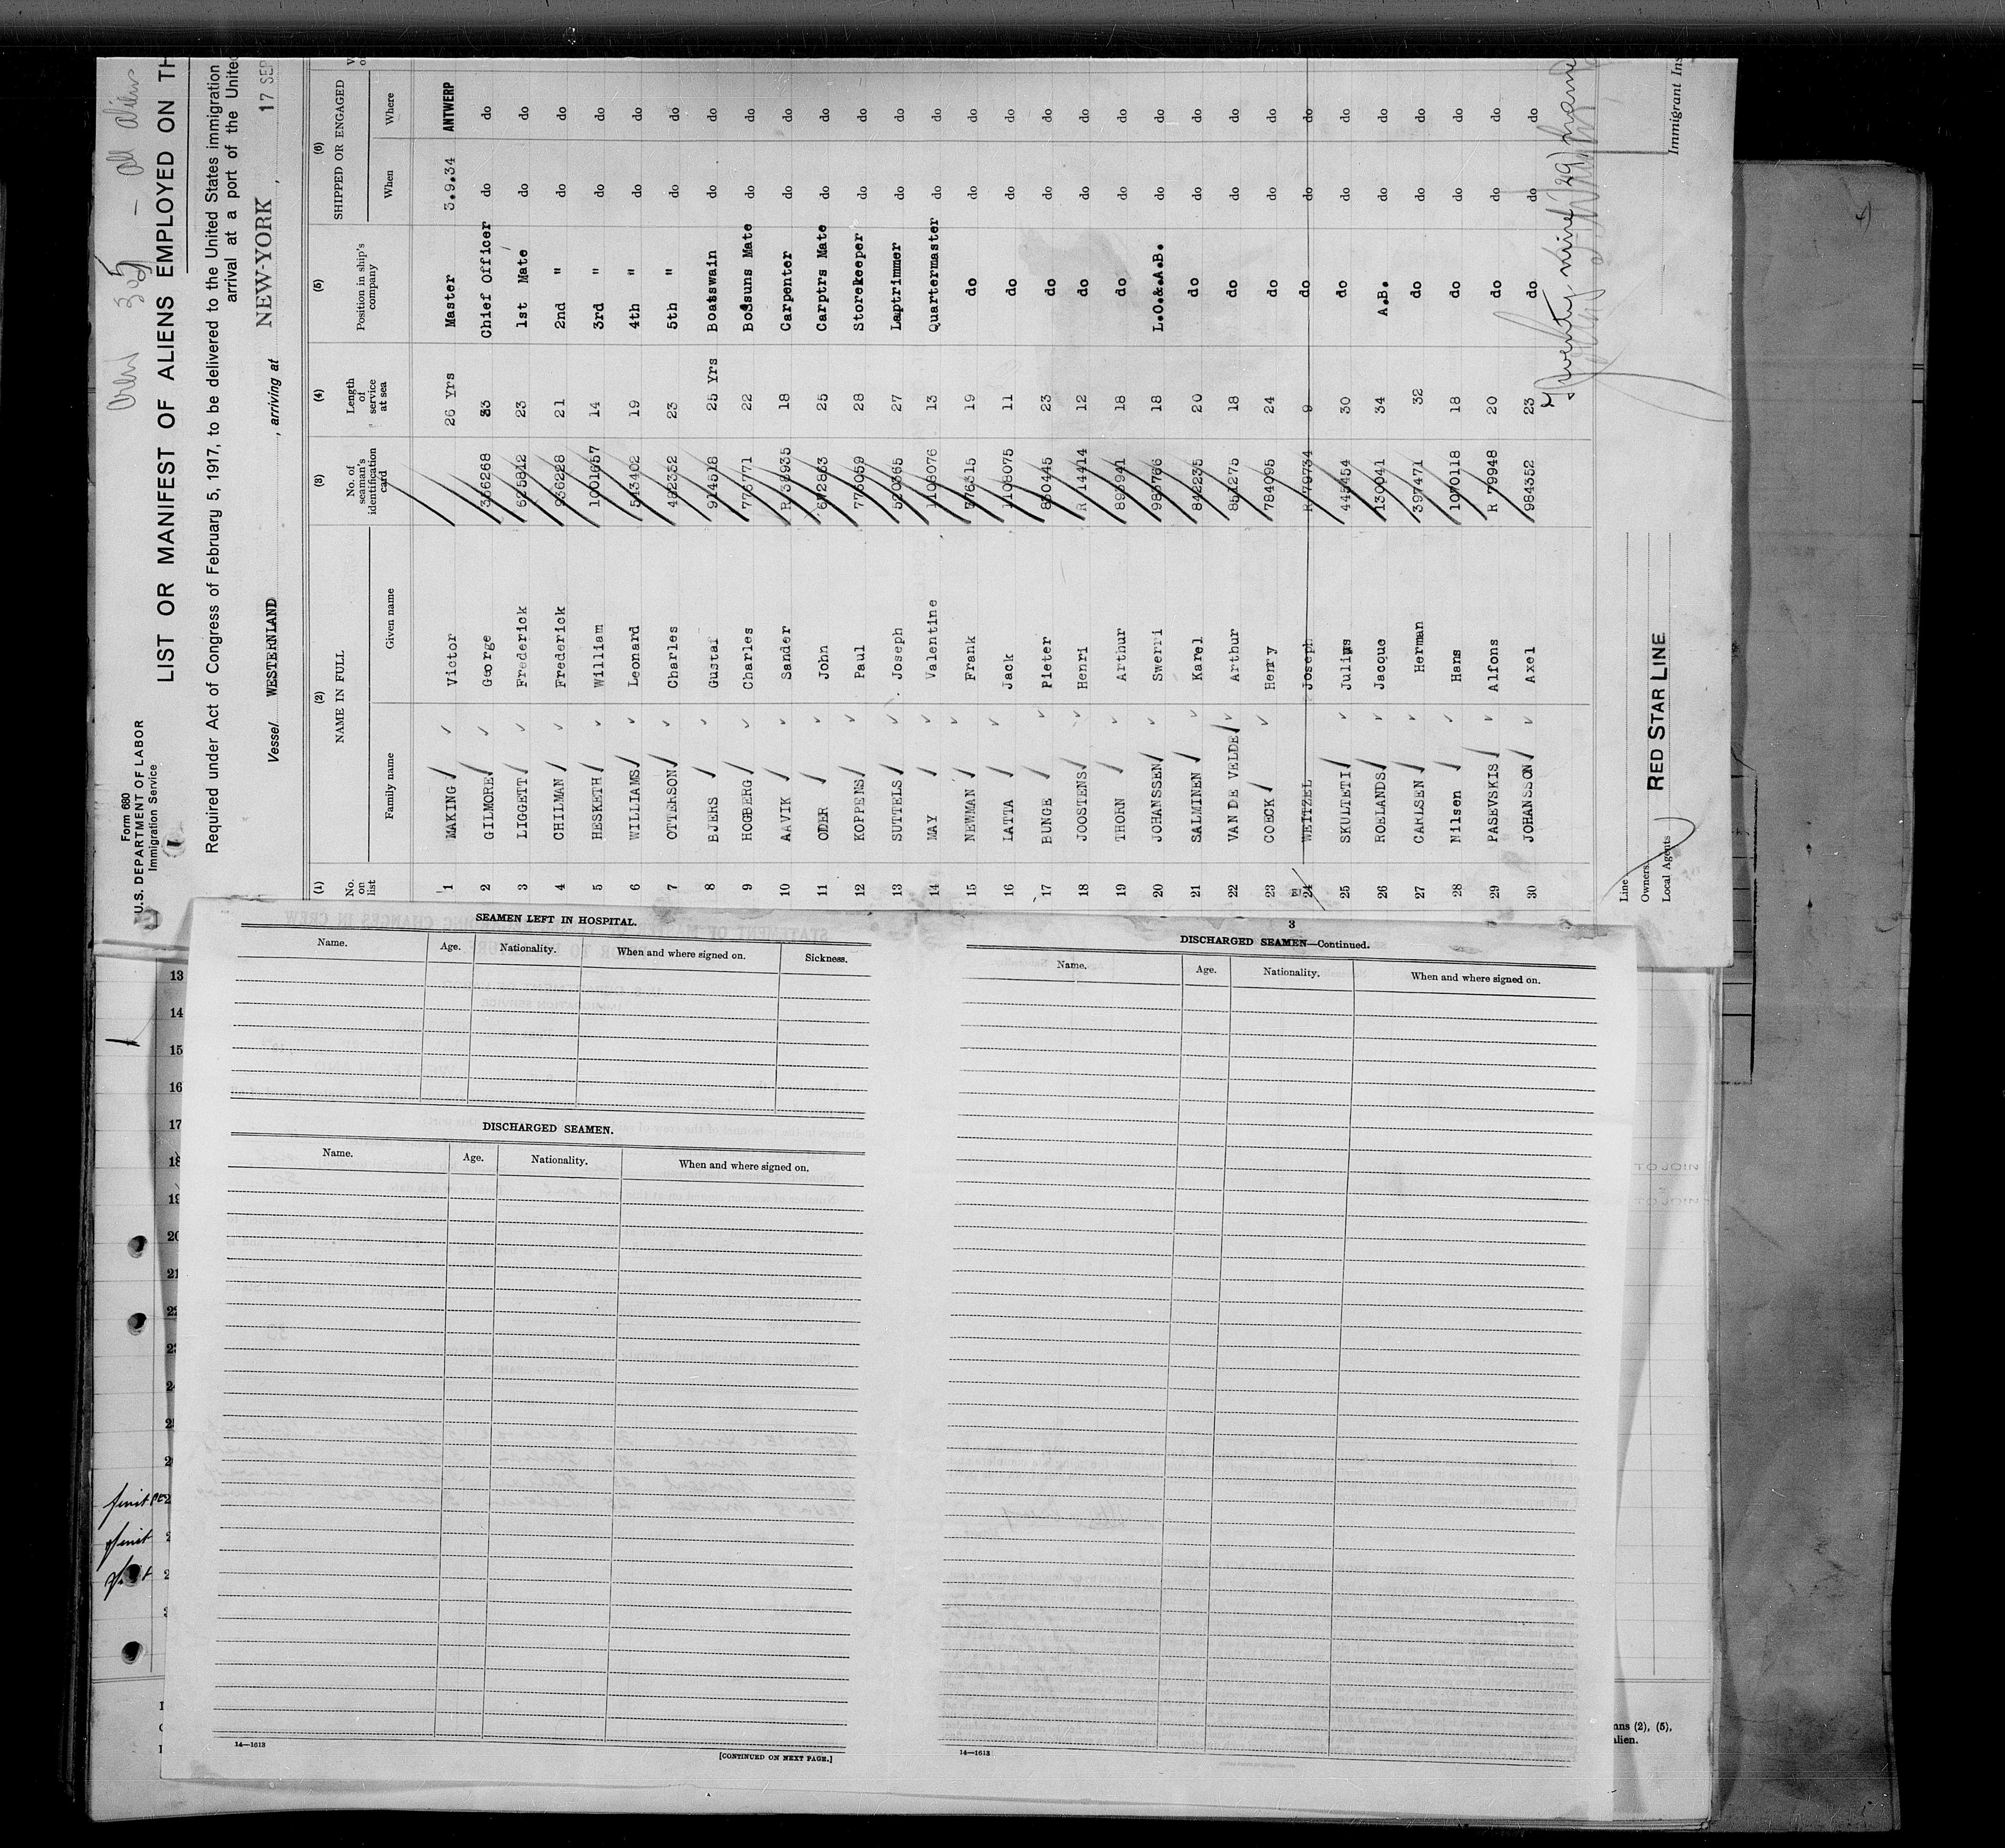 Crew 305 - all aliens
Form 680
U.S. DEPARTMENT OF LABOR
Immigration Service
LIST OR MANIFEST OF ALIENS EMPLOYED ON TH
Required under Act of Congress of February 5, 1917, to be delivered to the United States immigration
arrival at a port of the United
Vessel WESTERNLAND , arriving at NEW-YORK , 17 SEP
(1) (2) (3) (4) (5) (6)
No. on list NAME IN FULL No. of seaman's identification card Length of service at sea Position in ship's company SHIPPED OR ENGAGED
Family name Given name When Where
1 MAKING Victor 26 Yrs Master 3.9.34 ANTWERP
2 GILMORE George 356268 33 Chief Officer do do
3 LIGGETT Frederick 625812 23 1st Mate do do
4 CHILMAN Frederick 936228 21 2nd " do do
5 HESKETH William 1001657 14 3rd " do do
6 WILLIAMS Leonard 19 4th " do do
7 OTTERSON Charles 462332 23 5th " do do
8 BJERS Gustaf 914518 25 Yrs Boatswain do do
9 HOGBERG Charles 22 Bosuns Mate do do
10 AAVIK Sander 18 Carpenter do do
11 ODER John 25 Carptrs Mate do do
12 KOPPENS Paul 773059 28 Storekeeper do do
13 SUTTELS Joseph 520365 27 Lamptrimmer do do
14 MAY Valentine 1108076 13 Quartermaster do do
15 NEWMAN Frank 776315 19 do do do
16 LATTA Jack 1108075 11 do do do
17 BUNGE Pieter 830445 23 do do do
18 JOOSTENS Henri R 14414 12 do do do
19 THORN Arthur 899941 18 do do do
20 JOHANSSEN Swerri 985766 18 L.O.&.A.B. do do
21 SALMINEN Karel 842235 20 do do do
22 VAN DE VELDE Arthur 851275 18 do do do
23 COECK Henry 784095 24 do do do
24 WEITZEL Joseph R 79734 9 do do do
25 SKULTETI Julius 445454 30 do do do
26 ROELANDS Jacque 130041 34 A.B. do do
27 CARLSEN Herman 397471 32 do do do
28 Nilsen Hans 1070118 18 do do do
29 PASEVSKIS Alfons R 79948 20 do do do
30 JOHANSSON Axel 984352 23 do do do
Twenty nine (29) names
Line
Owners
Local Agents
RED STAR LINE
Immigrant Ins
SEAMEN LEFT IN HOSPITAL.
Name. Age. Nationality. When and where signed on. Sickness.
DISCHARGED SEAMEN.
Name. Age. Nationality. When and where signed on.
14—1613
[CONTINUED ON NEXT PAGE.]
3
DISCHARGED SEAMEN—Continued.
Name. Age. Nationality. When and where signed on.
14—1613
13
14
15
16
17
18
19
20
21
22
ns (2), (5),
alien.